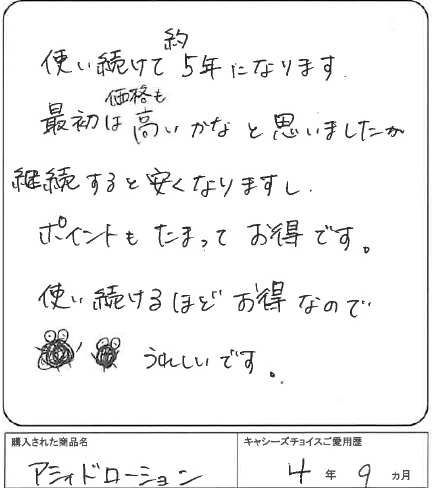 使い続けて約5年になります.
最初は価格も高いかなと思いましたが
継続すると安くなりますし.
ポイントもたまってお得です。
使い続けるほどお得なので
うれしいです。
購入された商品名
アシィドローション
キャシーズチョイスご愛用歴
4年9ヵ月